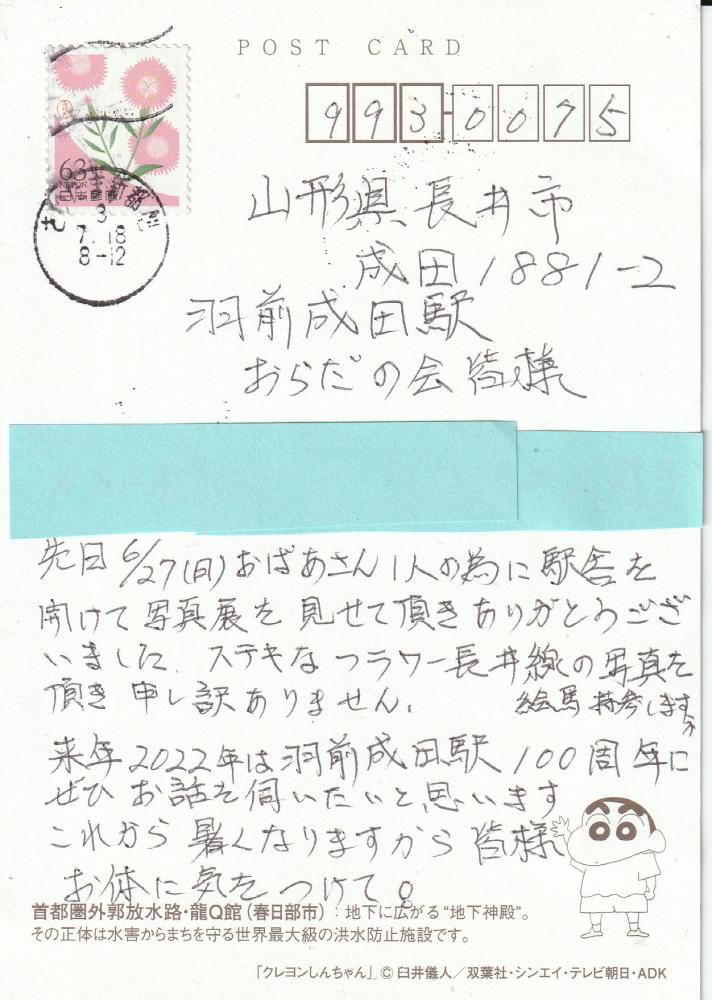 POST CARD
993-0075
63
NIPPON
日本郵便
さいたま新都心
3
7.18
8-12
山形県長井市
成田1881-2
羽前成田駅
おらだの会皆様
先日6/27(日)おばあさん1人の為に駅舎を
開けて写真展を見せて頂きありがとうござ
いました ステキなフラワー長井線の写真を
頂き申し訳ありません.
絵馬持参します
来年2022年は羽前成田駅100周年に
ぜひお話を伺いたいと思います
これから暑くなりますから皆様
お体に気をつけて。
首都圏外郭放水路・龍Q館(春日部市):地下に広がる“地下神殿”。
その正体は水害からまちを守る世界最大級の洪水防止施設です。
「クレヨンしんちゃん」©臼井儀人/双葉社・シンエイ・テレビ朝日・ADK